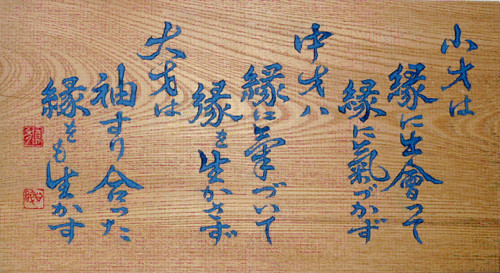 小才は
縁に出會って
縁に氣づかず
中才ハ
縁に氣づいて
縁を生かさず
大才は
袖すり合った
縁をも生かす